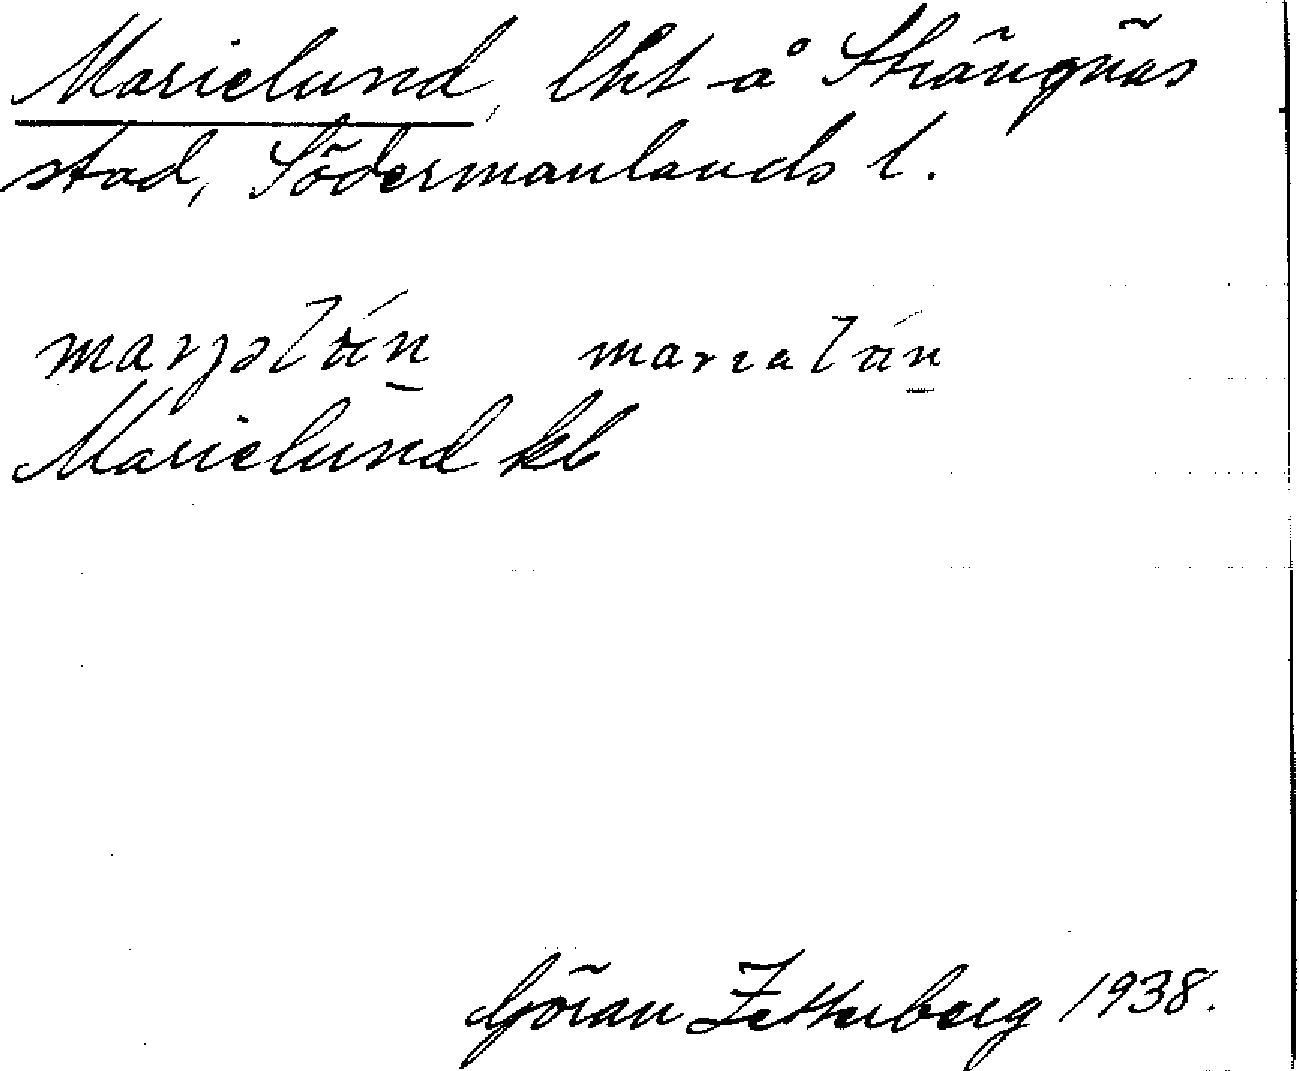 Marielund, lht å Strängnäs
stad, Södermanlands l.
Marielund kb
Göran Zetterberg 1938.